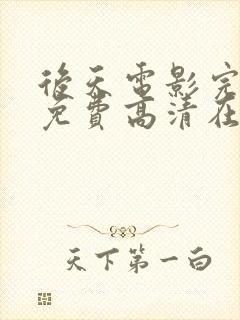 後天電影完
免費高清在
天下第一白